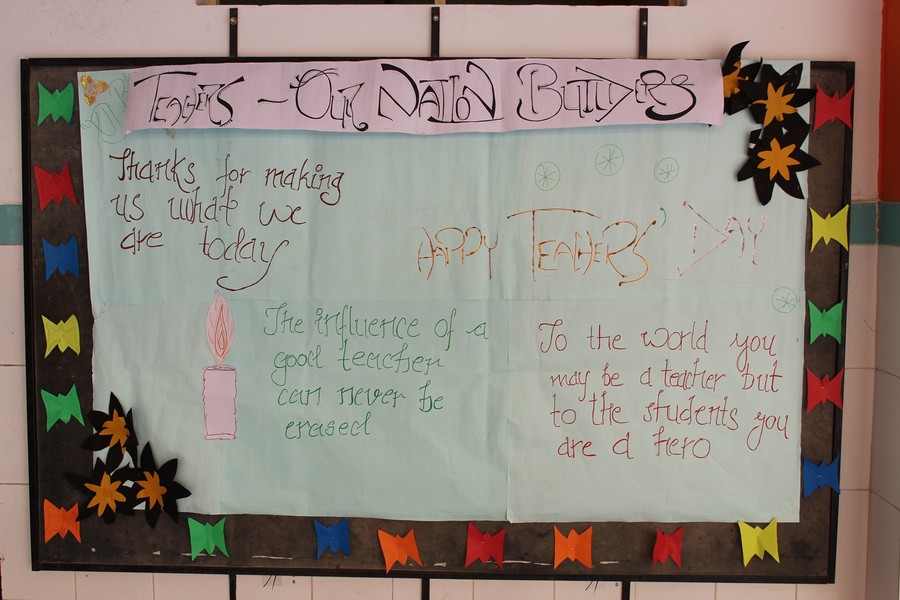 Teachers - Our Nation Builders
Thanks for making
us what we
are today
Happy Teachers' Day
The influence of a
good teacher
can never be
erased
To the world you
may be a teacher but
to the students you
are a hero